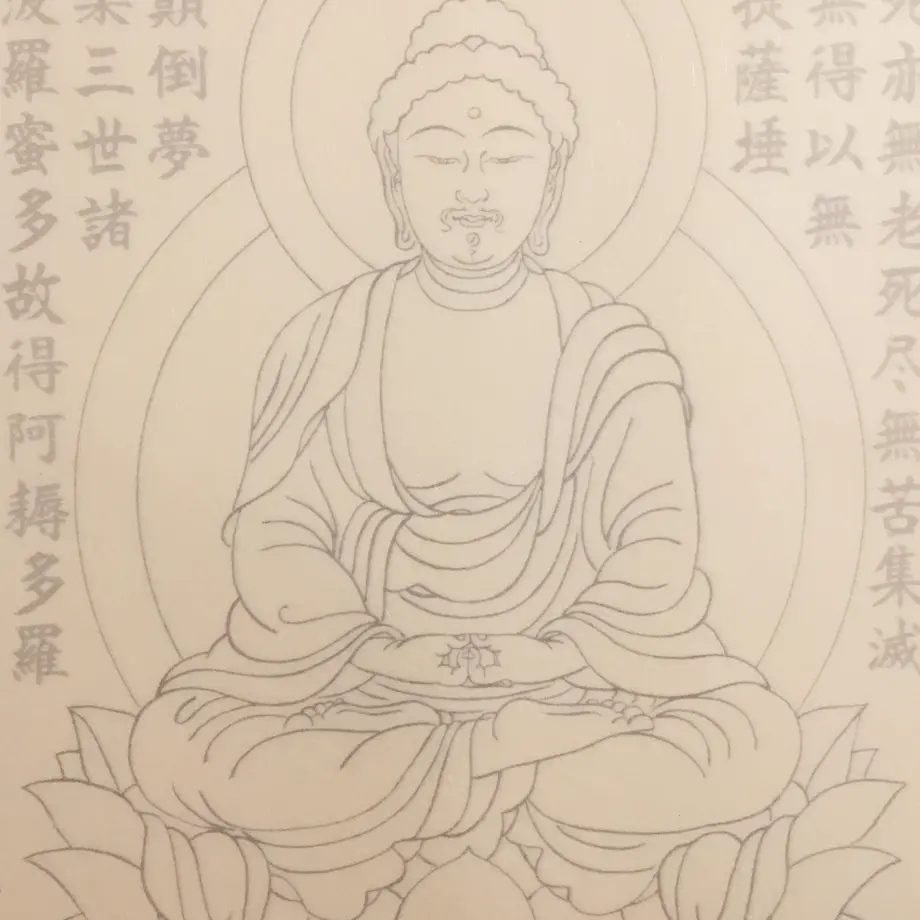 死亦無老死尽無苦集滅
無得以無
提薩埵
顛倒夢
槃三世諸
波羅蜜多故得阿耨多羅